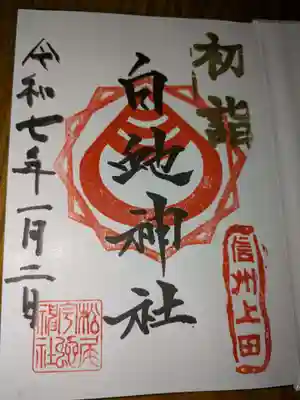 初詣
信州上田
白虵神社
令和七年一月二日
松尾
宇蛇
神社